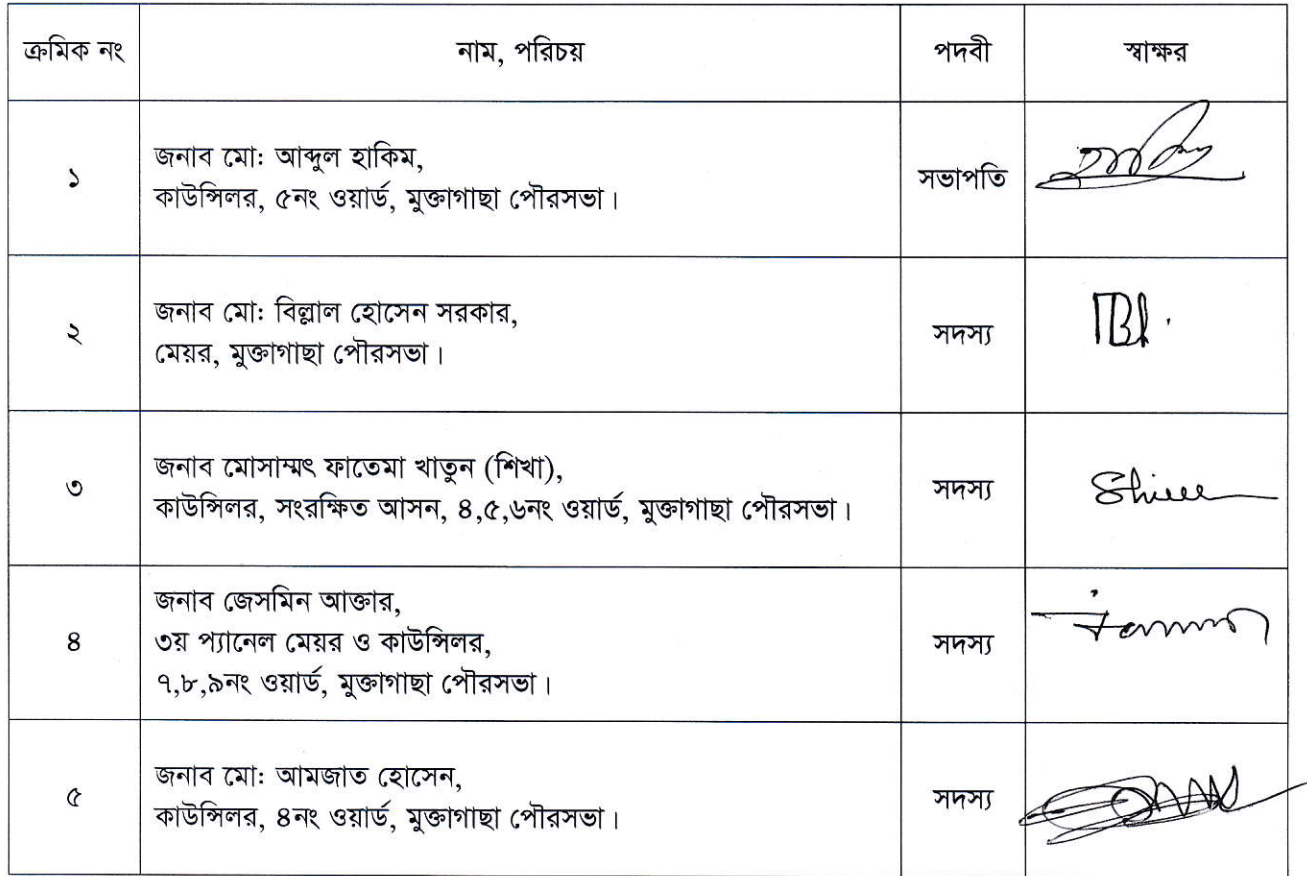 ক্রমিক নং নাম, পরিচয় পদবী স্বাক্ষর
১
জনাব মো: আব্দুল হাকিম,
কাউন্সিলর, ৫নং ওয়ার্ড, মুক্তাগাছা পৌরসভা।
সভাপতি
২
জনাব মো: বিল্লাল হোসেন সরকার,
মেয়র, মুক্তাগাছা পৌরসভা।
সদস্য
৩
জনাব মোসাম্মৎ ফাতেমা খাতুন (শিখা),
কাউন্সিলর, সংরক্ষিত আসন, ৪,৫,৬নং ওয়ার্ড, মুক্তাগাছা পৌরসভা।
সদস্য
৪
জনাব জেসমিন আক্তার,
৩য় প্যানেল মেয়র ও কাউন্সিলর,
৭,৮,৯নং ওয়ার্ড, মুক্তাগাছা পৌরসভা।
সদস্য
৫
জনাব মো: আমজাত হোসেন,
কাউন্সিলর, ৪নং ওয়ার্ড, মুক্তাগাছা পৌরসভা।
সদস্য